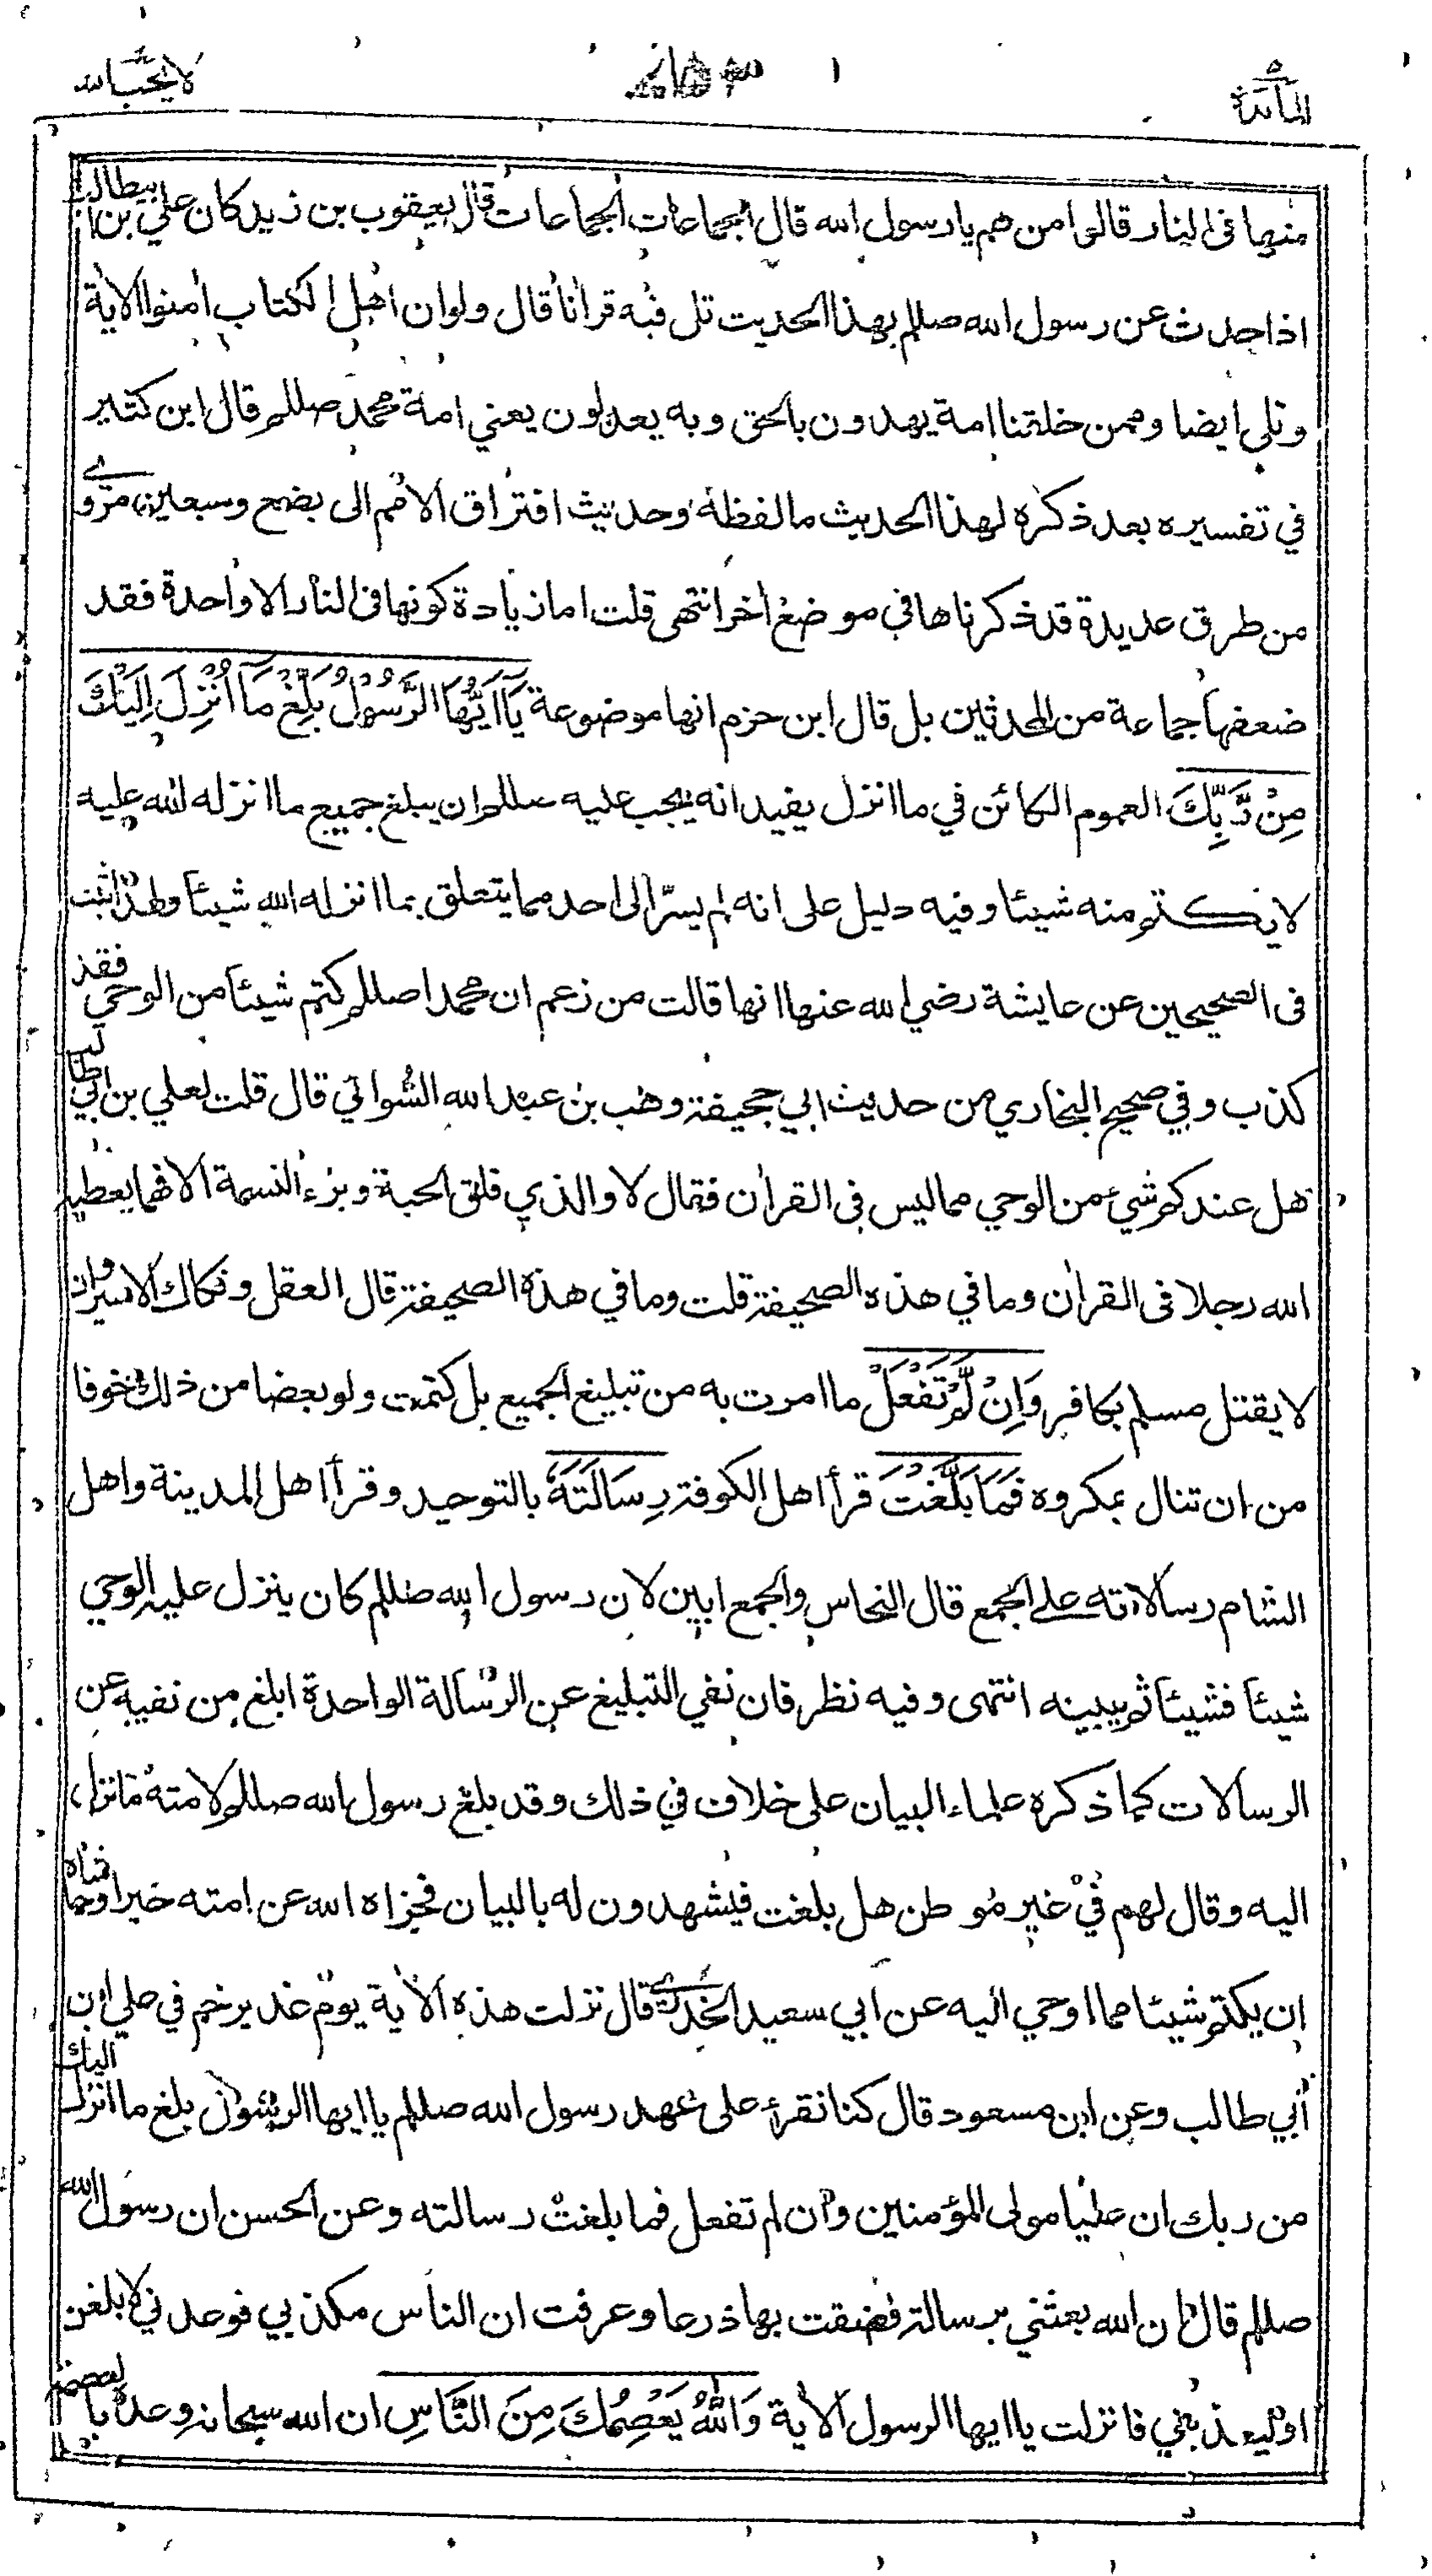 المائدة ٢٥٣ لا يحب الله
منها فى النار قالوا من هم يا رسول الله قال الجماعات الجماعات قال يعقوب بن زيد كان علي بن ابيطالب
اذا حدث عن رسول الله صللم بهذا الحديث تلى فيه قرانا قال ولو ان اهل الكتاب امنوا الاية
وتلى ايضا وممن خلقنا امة يهدون بالحق وبه يعدلون يعني امة محمد صللم قال ابن كثير
في تفسيره بعد ذكره لهذا الحديث ما لفظه وحديث افتراق الامم الى بضع وسبعين مروي
من طرق عديدة قد ذكرناها في موضع اخر انتهى قلت اما زيادة كونها فى النار الا واحدة فقد
ضعفها جماعة من المحدثين بل قال ابن حزم انها موضوعة يَآ اَيُّهَا الرَّسُوْلُ بَلِّغْ مَآ اُنْزِلَ اِلَيْكَ
مِنْ رَّبِّكَ العموم الكائن في ما انزل يفيد انه يجب عليه صللم ان يبلغ جميع ما انزله الله عليه
لا يكتم منه شيئا وفيه دليل على انه لم يسرّ الى احد مما يتعلق بما انزله الله شيئا ولهذا ثبت
فى الصحيحين عن عايشة رضي الله عنها انها قالت من زعم ان محمدا صللم كتم شيئا من الوحي فقد
كذب وفي صحيح البخاري من حديث ابي جحيفة وهب بن عبد الله السُوائي قال قلت لعلي بن ابي طالب
هل عندكم شيء من الوحي مما ليس فى القران فقال لا والذي فلق الحبة وبرء النسمة الا فهما يعطيه
الله رجلا فى القران وما في هذه الصحيفة قلت وما في هذه الصحيفة قال العقل وفكاك الاسير وان
لا يقتل مسلم بكافر وَاِنْ لَّمْ تَفْعَلْ ما امرت به من تبليغ الجميع بل كتمت ولو بعضا من ذلك خوفا
من ان تنال بمكروه فَمَا بَلَّغْتَ قرأ اهل الكوفة رِسَالَتَهٗ بالتوحيد وقرأ اهل المدينة واهل
الشام رسالاته على الجمع قال النحاس والجمع ابين لان رسول الله صللم كان ينزل عليه الوحي
شيئا فشيئا ثم يبينه انتهى وفيه نظر فان نفي التبليغ عن الرسالة الواحدة ابلغ من نفيه عن
الرسالات كما ذكره علماء البيان على خلاف في ذلك وقد بلغ رسول الله صللم لامته ما نزل
اليه وقال لهم في غير موطن هل بلغت فيشهدون له بالبيان فجزاه الله عن امته خيرا وحاشاه
ان يكتم شيئا مما اوحي اليه عن ابي سعيد الخدري قال نزلت هذه الاية يوم غدير خم في علي بن
أبي طالب وعن ابن مسعود قال كنا نقرء على عهد رسول الله صللم يا ايها الرسول بلغ ما انزل اليك
من ربك ان عليا مولى المؤمنين وان لم تفعل فما بلغت رسالته وعن الحسن ان رسول الله
صللم قال ان الله بعثني برسالة فضقت بها ذرعا وعرفت ان الناس مكذبي فوعدني لابلغن
او ليعذبني فانزلت يا ايها الرسول الاية وَاللّٰهُ يَعْصِمُكَ مِنَ النَّاسِ ان الله سبحانه وعده بالعصمة